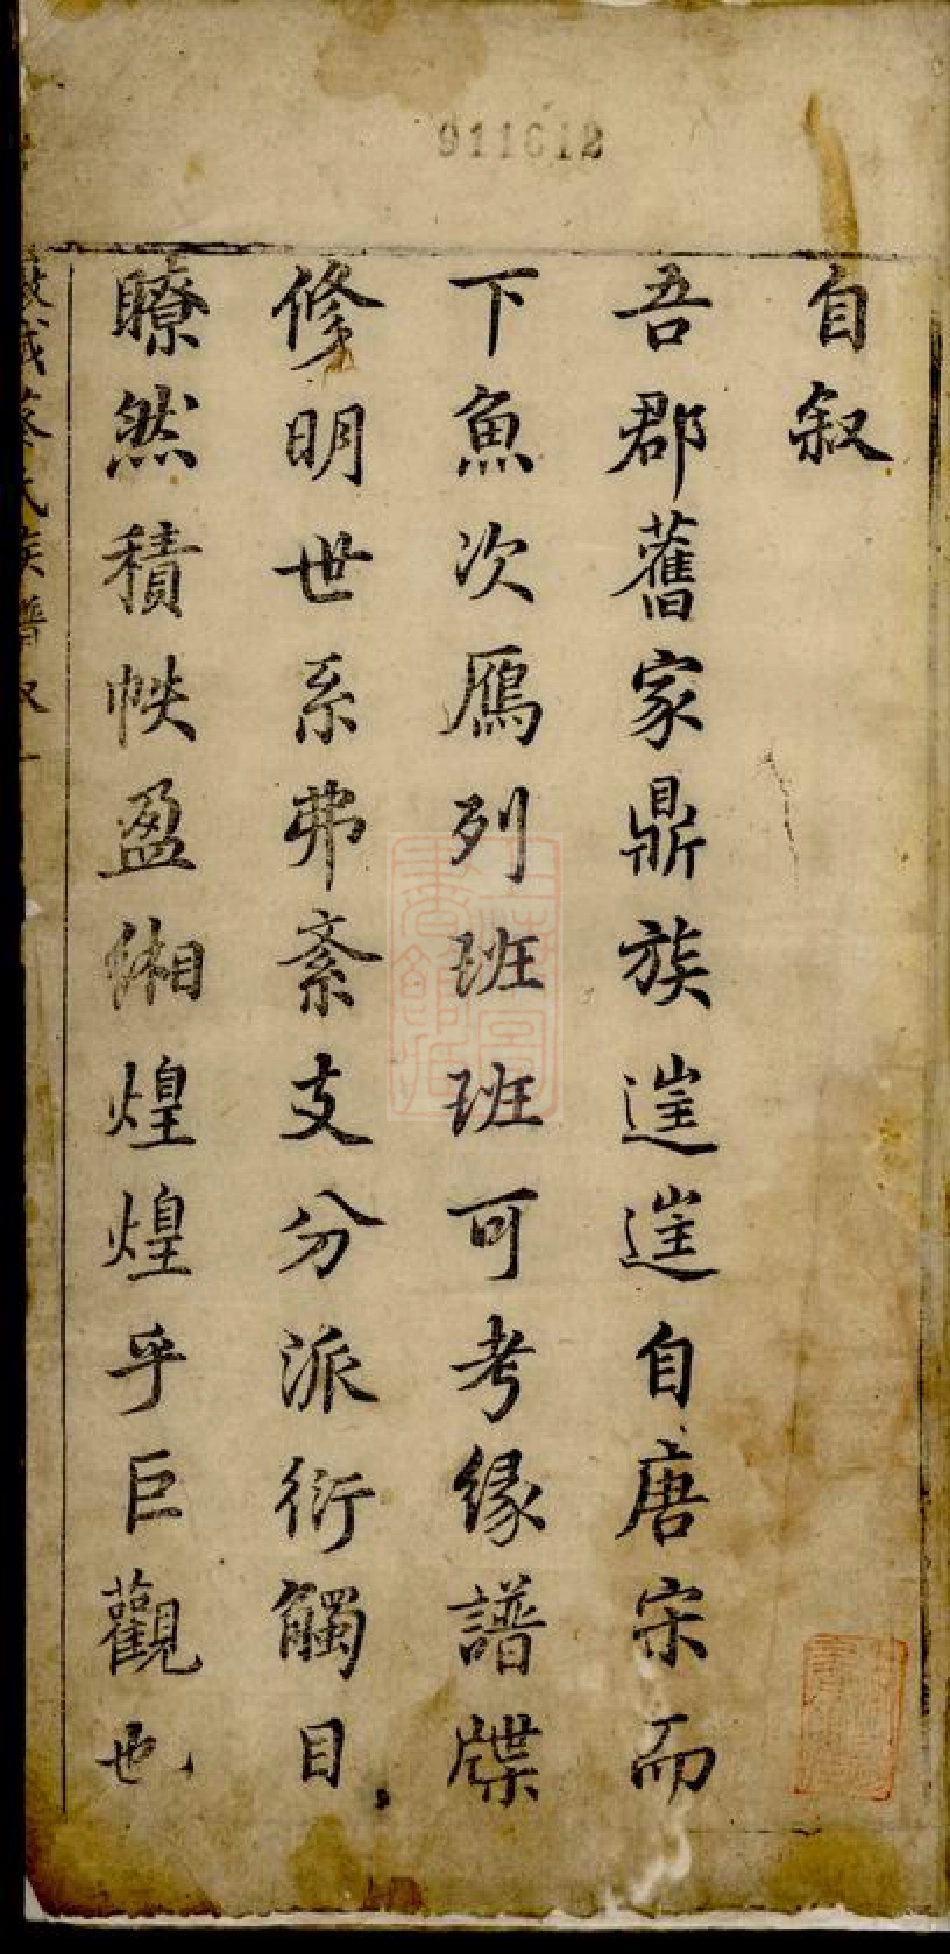 911612
自叙
吾郡舊家鼎族逬逬自唐宋而
下魚次鴈列班班可考緣譜牒
修明世系弗紊支分派衍觸目
瞭然積帙盈緗煌煌乎巨觀也
蔡氏族譜